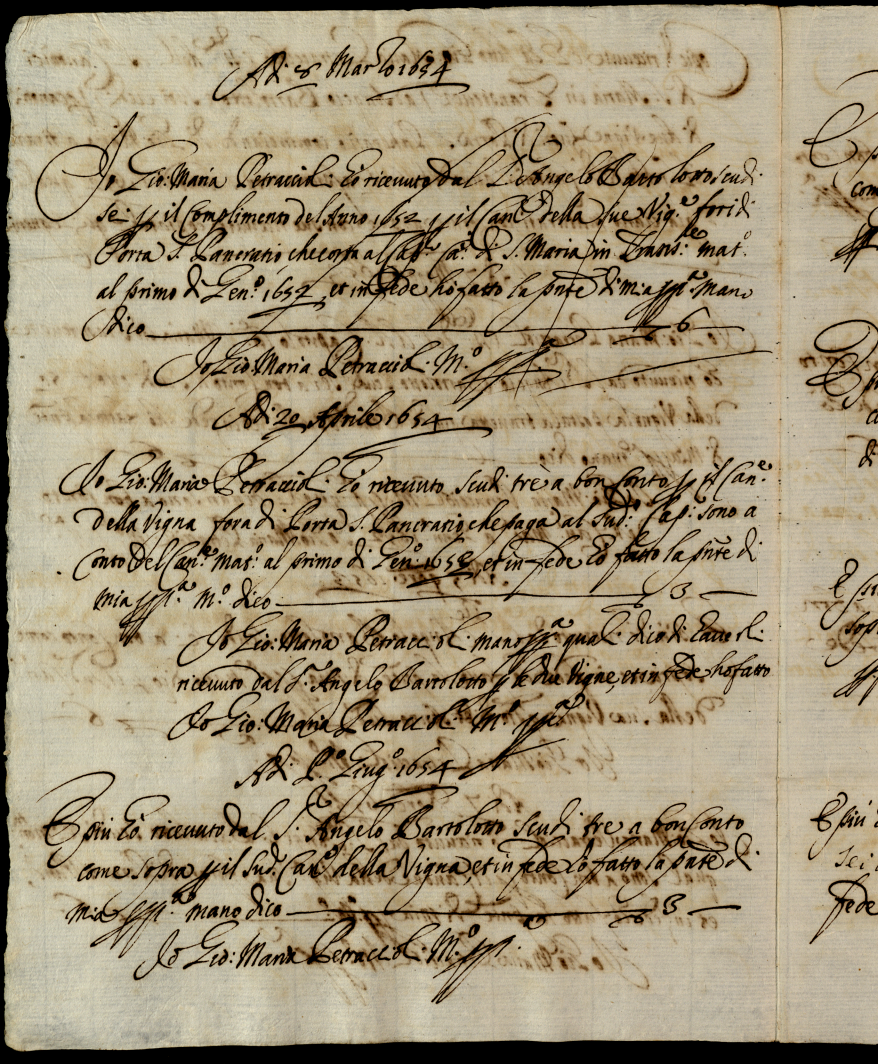 Adi 8 Marzo 1654
Io Gio: Maria Petracciol: hò ricevuto dal S.r Angelo Bartolotto scudi
sei p il complimento del Anno 1652 p il Can.e della sue Vig.e fori di
Porta S. Pancratio che corr a al Cap.o Ca: di S. Maria in Trans: mat.o
al primo di Gen.o 1652 et in fede hò fatto la pnte di mia pp.a mano
dico 6
Io Gio: Maria Petracciol: M.o pp.a
Adi 20 Aprile 1654
Io Gio: Maria Petracciol: hò ricevuto scudi tre a bon Conto p il Can.e
della Vigna fora di Porta S. Pancratio che paga al Sud.o Cap: sono a
Conto del Can.e mat.o al primo di Gen.o 1653 et in fede hò fatto la pnte di
mia pp.a M.o dico 3
Io Gio: Maria Petracciol: mano pp.a quali dico di haver li
ricevuto dal S.r Angelo Bartolotto p le due Vigne, et in fede hò fatto
Io Gio: Maria Petracciol: M.o pp.a
Adi P.o Giug.o 1654
E più hò ricevuto dal S.r Angelo Bartolotto scudi tre a bon Conto
come sopra p il Sud.o Can.e della Vigna, et in fede hò fatto la pnte di
mia pp.a mano dico 3
Io Gio: Maria Petracciol: M.o pp.a